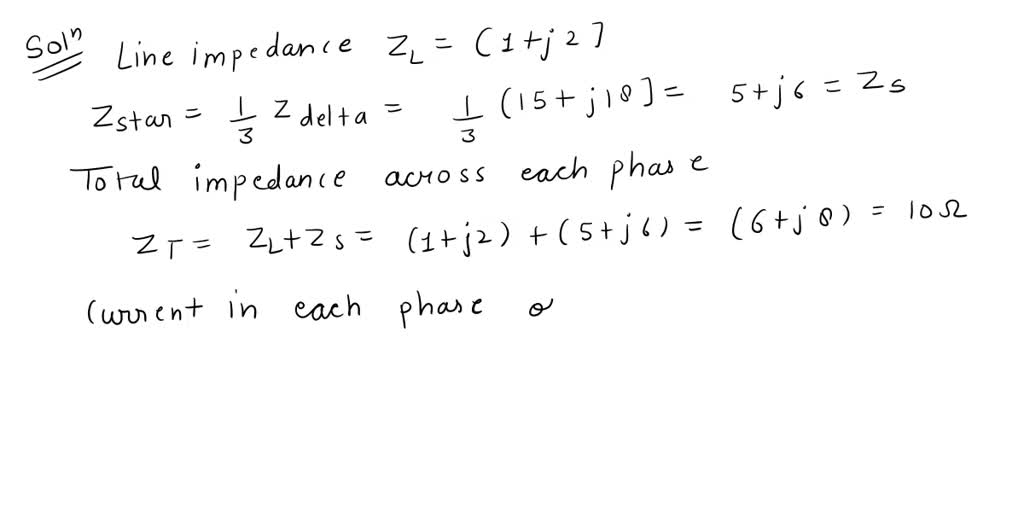 Solⁿ Line impedance Z_L = (1+j2]
Zstar = 1/3 Zdelta = 1/3 (15+j18] = 5+j6 = Zs
Total impedance across each phase
Z_T = Z_L+Zs = (1+j2) + (5+j6) = (6+j8) = 10Ω
Current in each phase o